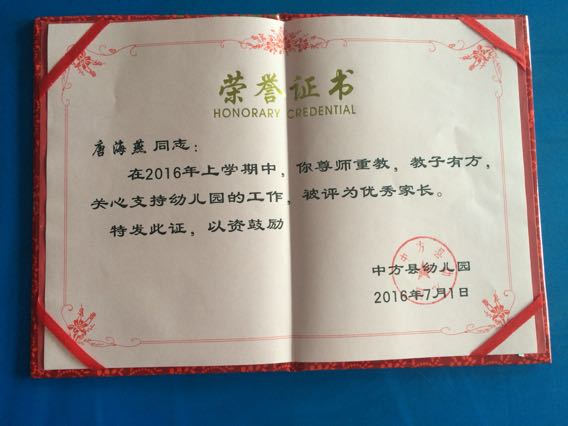 荣誉证书
HONORARY CREDENTIAL
唐海燕同志：
在2016年上学期中，你尊师重教，教子有方，
关心支持幼儿园的工作，被评为优秀家长。
特发此证，以资鼓励
中方县幼儿园
2016年7月1日